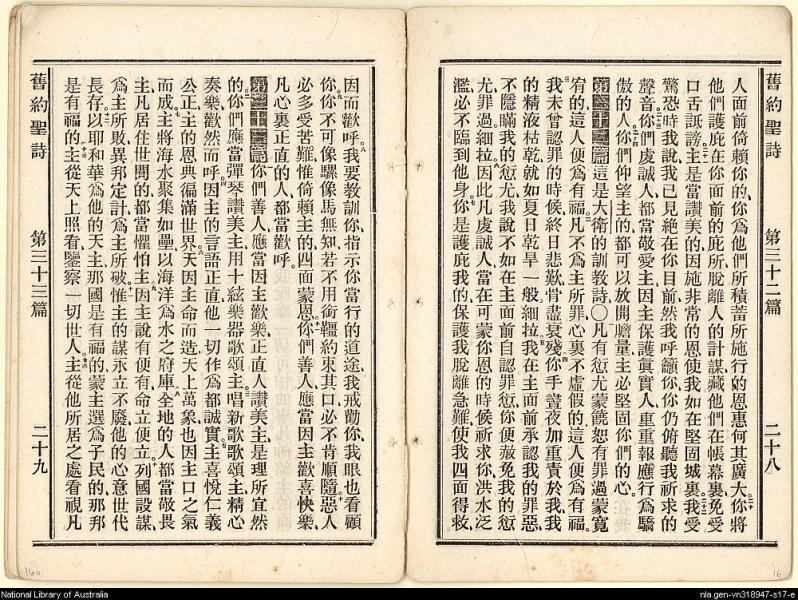 舊約聖詩　第三十二篇　二十八
人面前倚賴你的、你爲他們所積蓄所施行的恩惠何其廣大、你將
他們護庇在你面前的庇所、脫離人的計謀、藏他們在帳幕裏、免受
口舌誣謗、主是當讚美的、因施非常的恩、使我如在堅固城裏、我受
驚恐時我說、我已見絕在你目前、然我呼籲你、你仍俯聽我祈求的
聲音、你們虔誠人都當敬愛主、因主保護眞實人、重重報應行爲驕
傲的人、你們仰望主的都可以放開膽量、主必堅固你們的心。
第三十二篇 這是大衛的訓教詩〇凡有愆尤蒙饒恕、有罪過蒙寬
宥的、這人便爲有福、凡不爲主所罪、心裏不虛假的、這人便爲有福、
我未曾認罪的時候、終日悲歎、骨盡衰殘、你手晝夜加重責於我、我
的精液枯乾、就如夏日乾旱一般、細拉、我在主面前承認我的罪惡、
不隱瞞我的愆尤、我說、不如在主面前自認罪愆、你便赦免我的愆
尤罪過、細拉、因此凡虔誠人、當在可蒙你恩的時候祈求你、洪水泛
濫、必不臨到他身、你是護庇我的、保護我脫離急難、使我四面得救、
因而歡呼、我要教訓你、指示你當行的道途、我戒勸你、我眼也看顧
你、你不可像騾像馬無知、若不用銜韁約束其口、必不肯順隨、惡人
必多受苦難、惟倚賴主的、四面蒙恩、你們善人、應當因主歡喜快樂、
凡心裏正直的人、都當歡呼。
第三十三篇 你們善人、應當因主歡樂、正直人讚美主、是理所宜然
的、你們應當彈琴讚美主、用十絃樂器歌頌主、唱新歌歌頌主、精心
奏樂、歡然而呼、因主的言語正直、他一切作爲都誠實、主喜悅仁義
公正、主的恩典徧滿世界、天因主命而造、天上萬象也因主口之氣
而成、主將海水聚集如壘、以海洋爲水之府庫、全地的人都當敬畏
主、凡居住世間的都當懼怕主、因主說有便有、命立便立、列國設謀、
爲主所敗、異邦定計、爲主所破、惟主的謀永立不廢、他的心意世代
長存、以耶和華爲他的天主、那國是有福的、蒙主選爲子民的、那邦
是有福的、主從天上照看、鑒察一切世人、主從他所居之處、看視凡
舊約聖詩　第三十三篇　二十九
16a
16
National Library of Australia
nla.gen-vn318947-s17-e